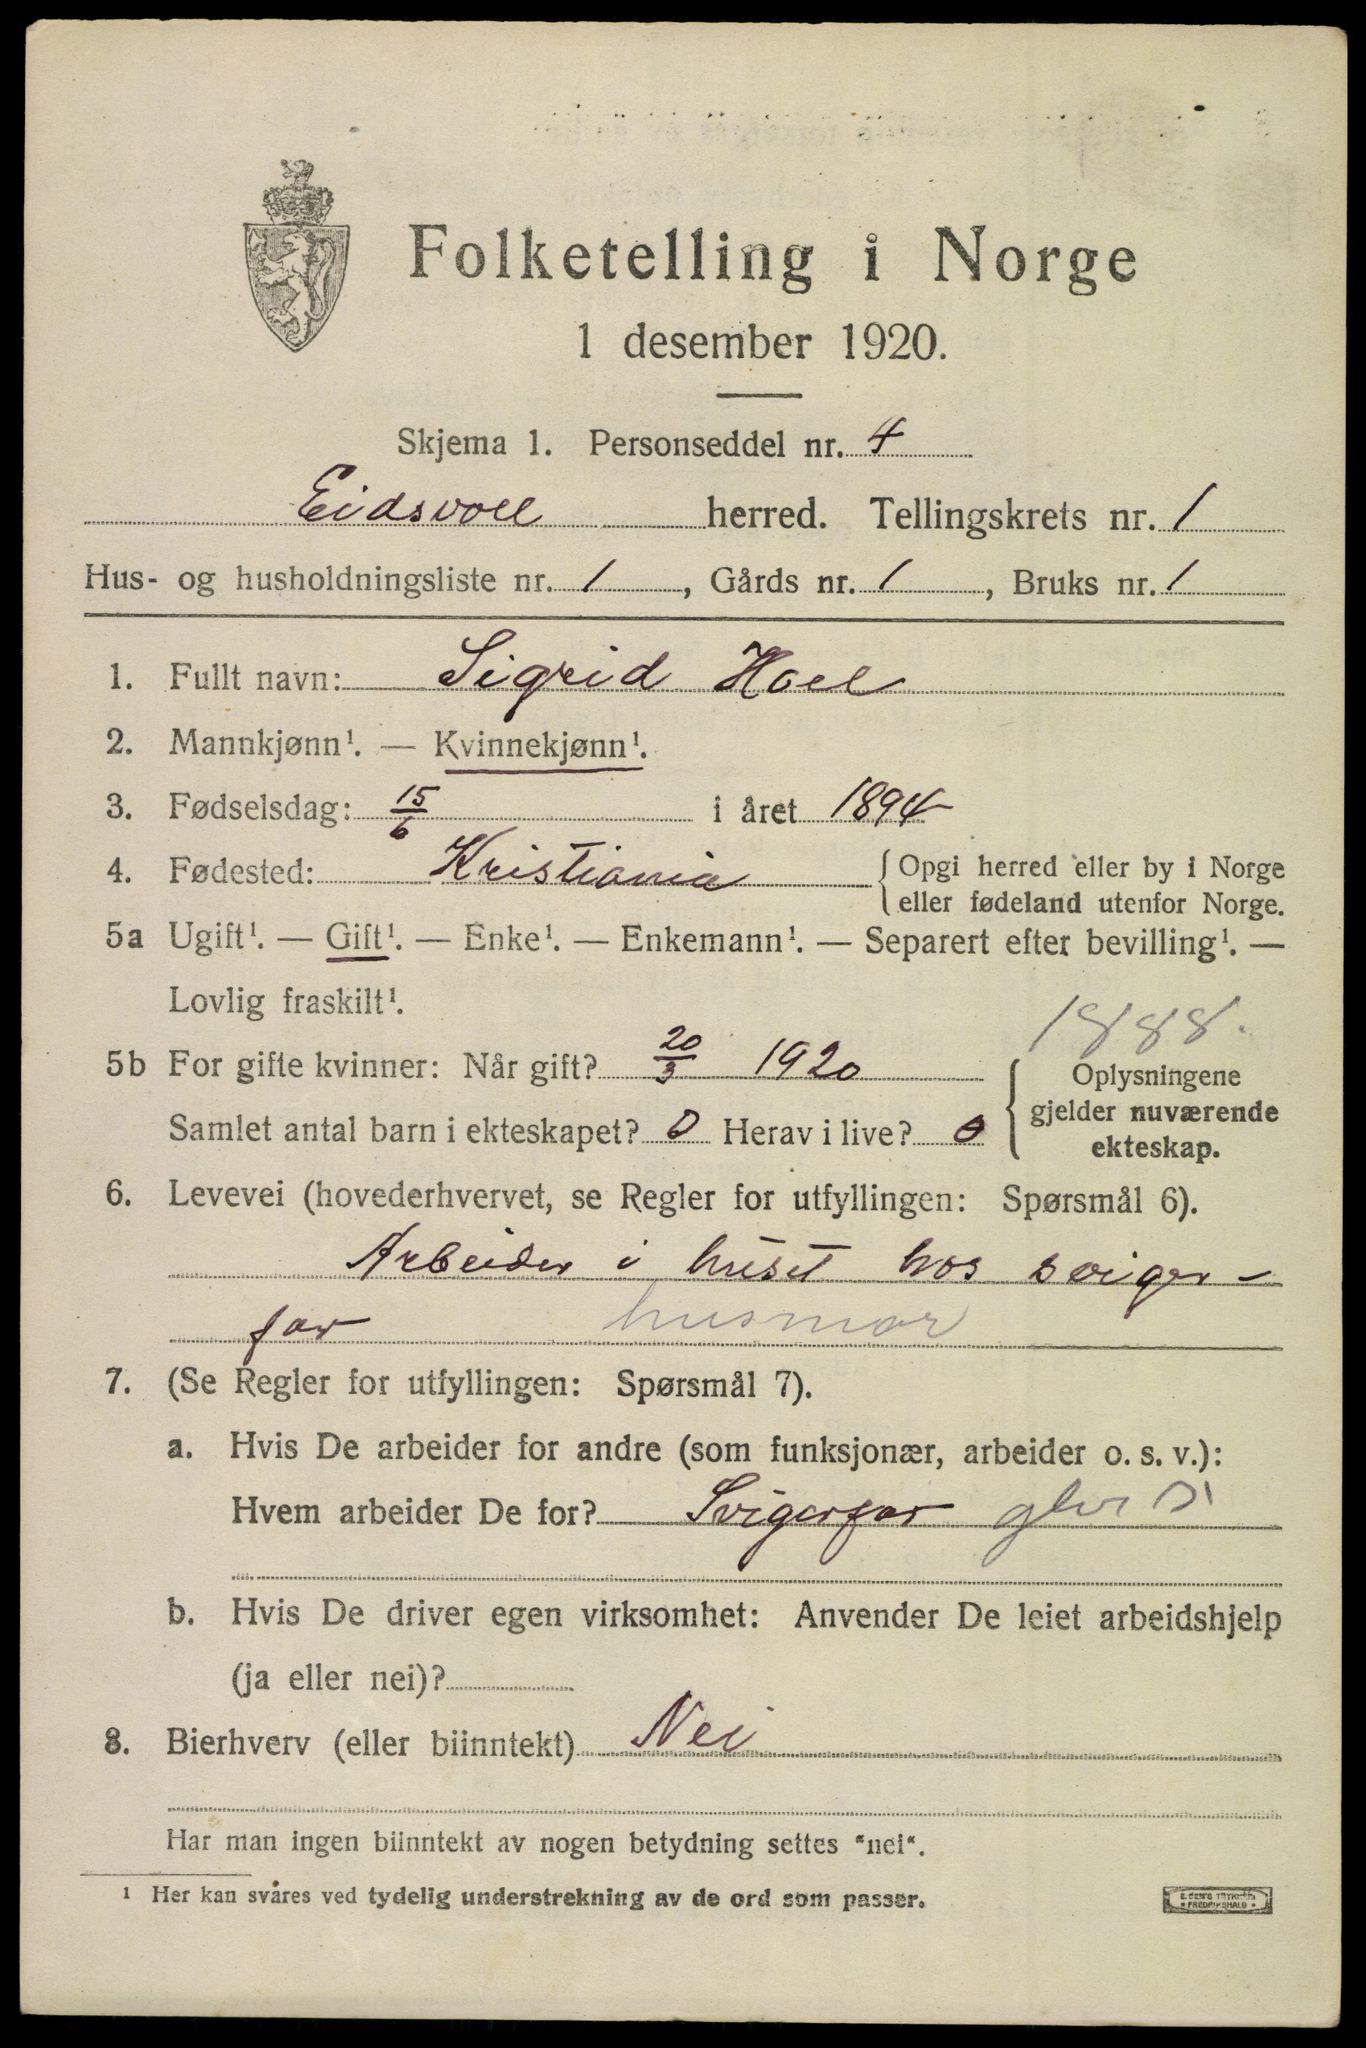 Folketelling i Norge
1 desember 1920.
Skjema 1. Personseddel nr. 4
Eidsvoll herred. Tellingskrets nr. 1
Hus- og husholdningsliste nr. 1, Gårds nr. 1, Bruks nr. 1
1. Fullt navn: Sigrid Hoel
2. Mannkjønn¹. — Kvinnekjønn¹.
3. Fødselsdag: 15/6 i året 1894
4. Fødested: Kristiania { Opgi herred eller by i Norge
eller fødeland utenfor Norge.
5a Ugift¹. — Gift¹. — Enke¹. — Enkemann¹. — Separert efter bevilling¹. —
Lovlig fraskilt¹.
1888.
5b For gifte kvinner: Når gift? 20/3 1920
Samlet antal barn i ekteskapet? 0 Herav i live? 0
{ Oplysningene
gjelder nuværende
ekteskap.
6. Levevei (hovederhvervet, se Regler for utfyllingen: Spørsmål 6).
Arbeider i huset hos sviger-
far husmor
7. (Se Regler for utfyllingen: Spørsmål 7).
a. Hvis De arbeider for andre (som funksjonær, arbeider o. s. v.):
Hvem arbeider De for? Svigerfar
b. Hvis De driver egen virksomhet: Anvender De leiet arbeidshjelp
(ja eller nei)?
8. Bierhverv (eller biinntekt) Nei
Har man ingen biinntekt av nogen betydning settes "nei".
¹ Her kan svares ved tydelig understrekning av de ord som passer.
FREDRIKSHALD